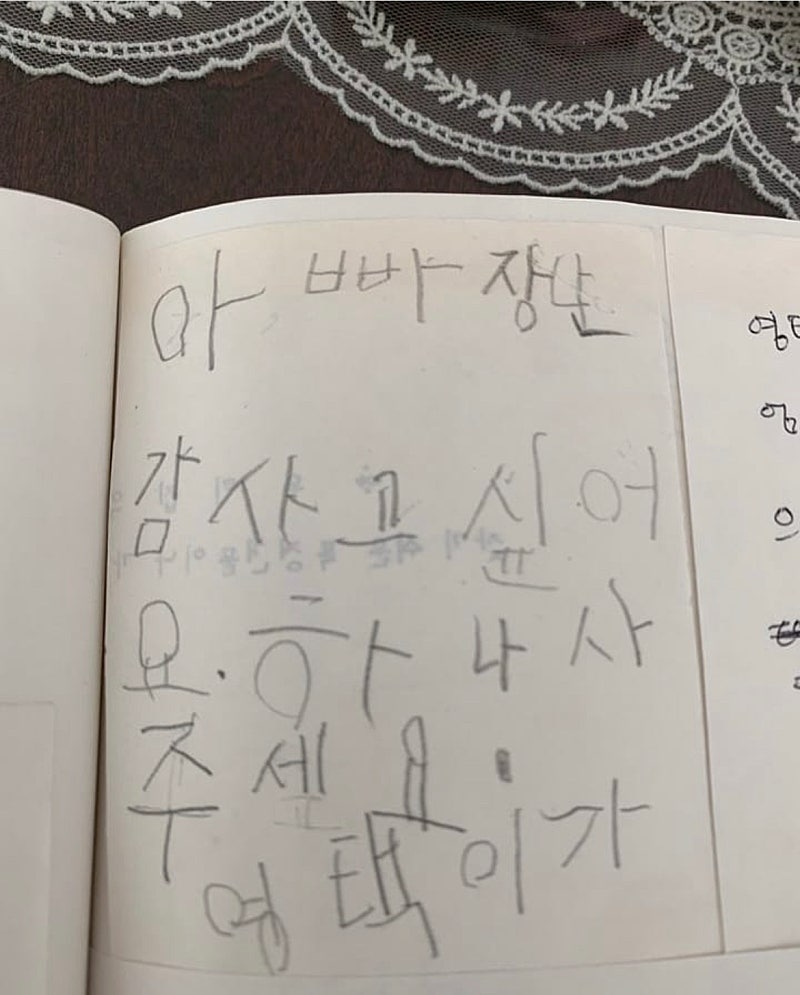 아빠 장난
감 사고 시어
요. 하나 사
주세요.
영택이가